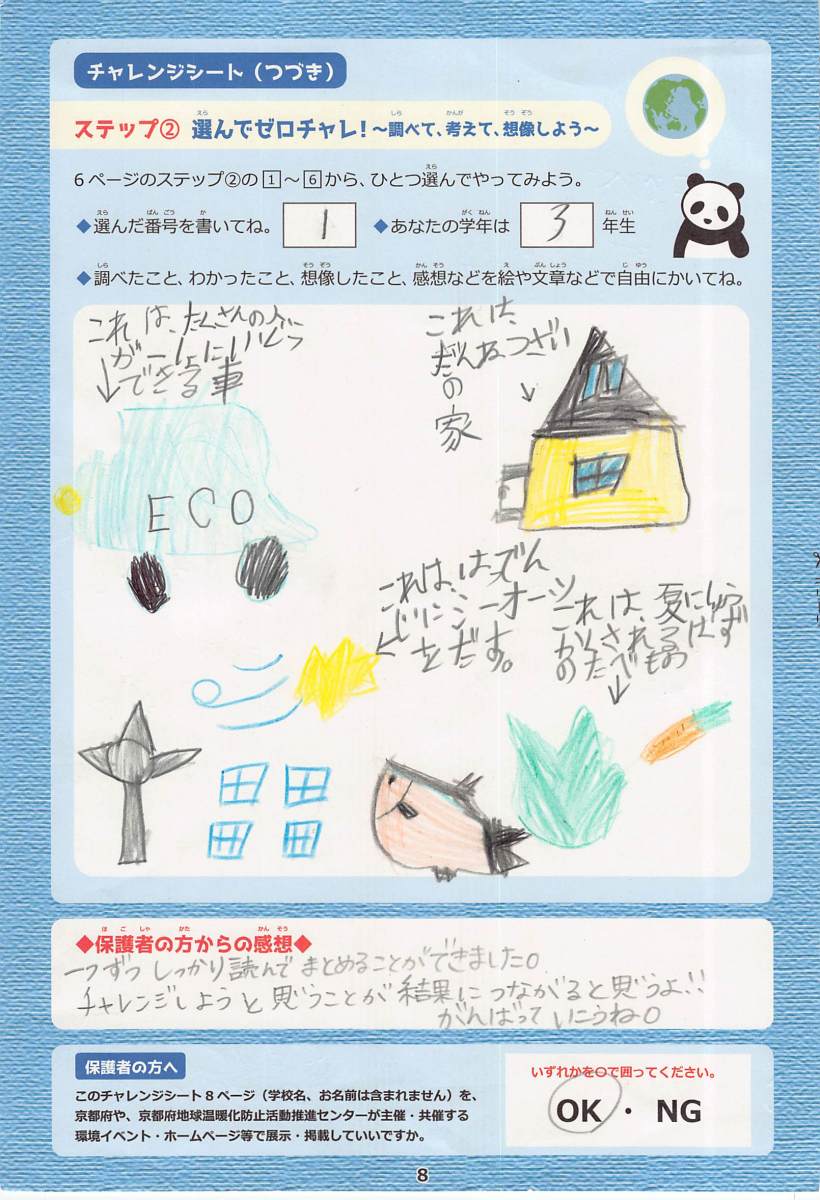 チャレンジシート（つづき）
ステップ② 選んでゼロチャレ！～調べて、考えて、想像しよう～
6ページのステップ②の1～6から、ひとつ選んでやってみよう。
◆選んだ番号を書いてね。 1 ◆あなたの学年は 3 年生
◆調べたこと、わかったこと、想像したこと、感想などを絵や文章などで自由にかいてね。
これは、たくさんの人
が一しょにいどう
できる車
ECO
これは、
だんねつざい
の家
これは、はつでん
じにシーオーツー
をだす。
これは、夏に
かくされるはず
のたべもの
◆保護者の方からの感想◆
一つずつしっかり読んでまとめることができました。
チャレンジしようと思うことが結果につながると思うよ!!
がんばっていこうね。
保護者の方へ
このチャレンジシート8ページ（学校名、お名前は含まれません）を、
京都府や、京都府地球温暖化防止活動推進センターが主催・共催する
環境イベント・ホームページ等で展示・掲載していいですか。
いずれかを○で囲ってください。
OK ・ NG
8